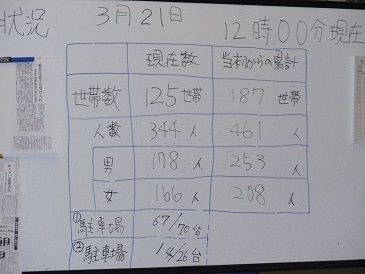 状況 3月21日 12時00分現在
現在数 当初からの累計
世帯数 125世帯 187世帯
人数 344人 461人
男 178人 253人
女 166人 208人
①駐車場 67/70台
②駐車場 14/26台